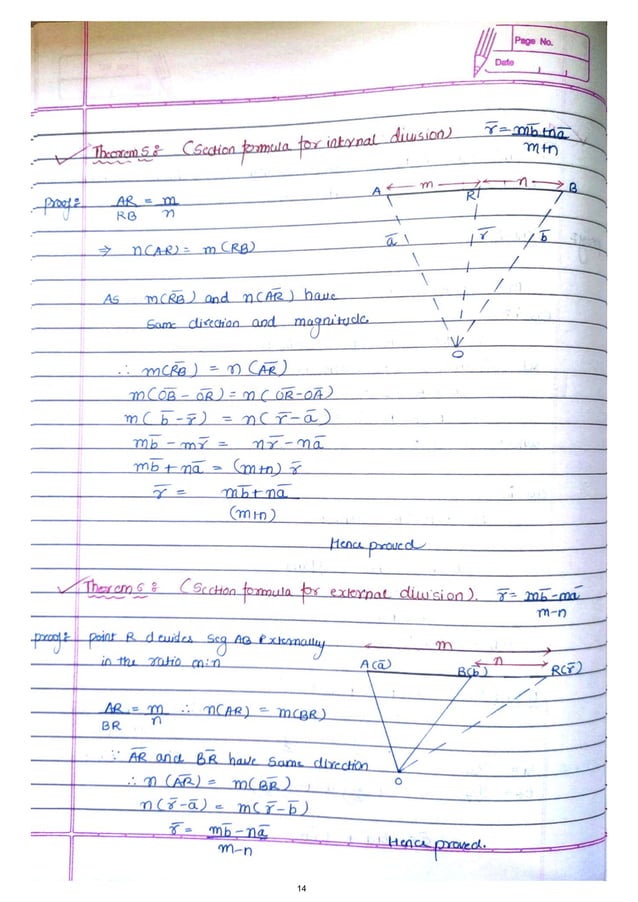 Page No.
Date
Theorem 5 : (Section formula for internal division) r̄ = mb̄+nā / m+n
Proof : AR/RB = m/n
A m R n B
⇒ n(AR) = m(RB)
ā r̄ b̄
As m(R̄B̄) and n(ĀR̄) have
same direction and magnitude
O
∴ m(R̄B̄) = n(ĀR̄)
m(ŌB̄ - ŌR̄) = n(ŌR̄ - ŌĀ)
m(b̄ - r̄) = n(r̄ - ā)
mb̄ - mr̄ = nr̄ - nā
mb̄ + nā = (m+n) r̄
r̄ = mb̄ + nā / (m+n)
Hence proved
Theorem 6 : (Section formula for external division). r̄ = mb̄ - mā / m-n
proof : point R devides seg AB Externally
in the ratio m:n
m
n
A(ā) B(b̄) R(r̄)
AR/BR = m/n ∴ n(AR) = m(BR)
∵ ĀR̄ and B̄R̄ have same direction
O
∴ n (ĀR̄) = m(B̄R̄)
n(r̄-ā) = m(r̄-b̄)
r̄ = mb̄ - nā / m-n
Hence proved.
14